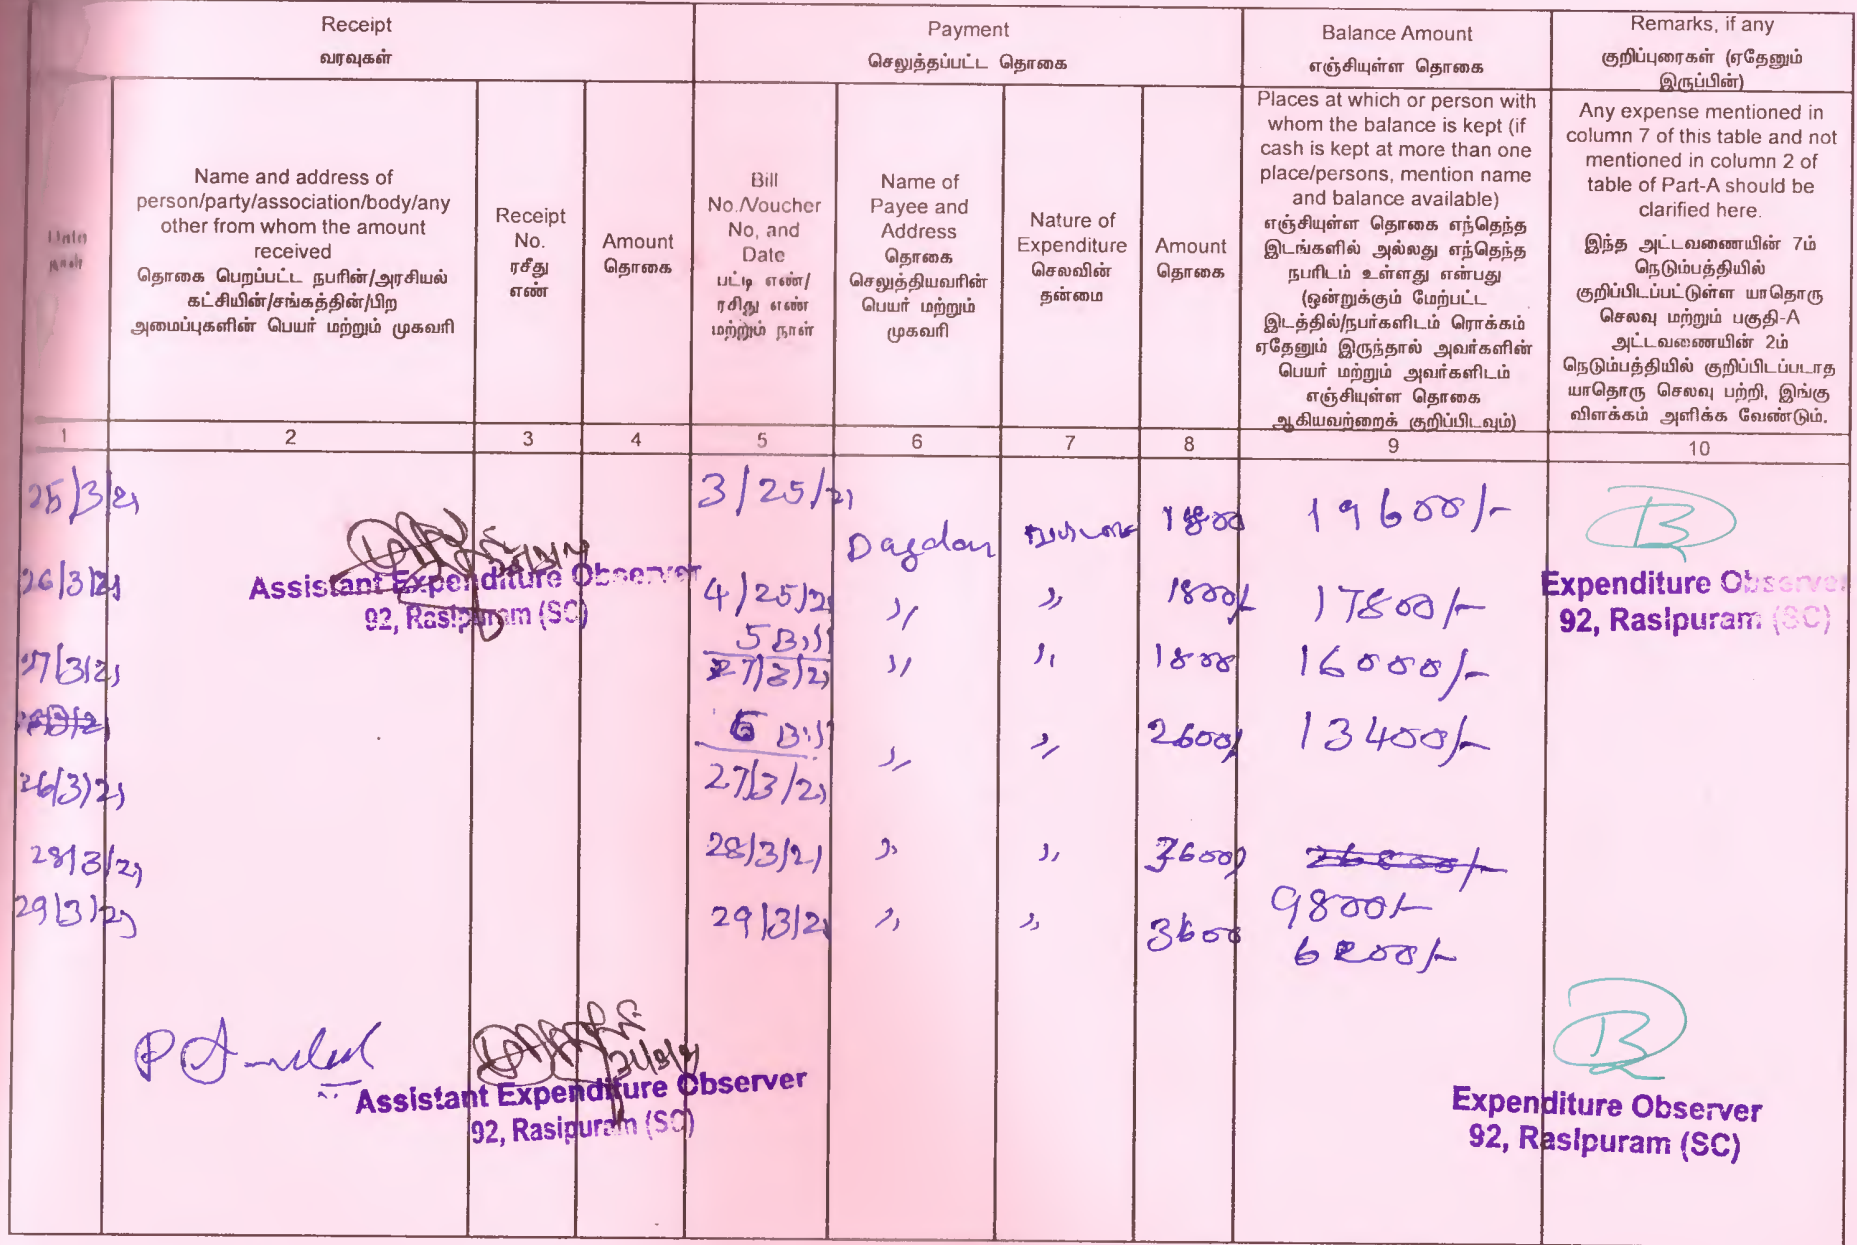 Receipt
வரவுகள்
Payment
செலுத்தப்பட்ட தொகை
Balance Amount
எஞ்சியுள்ள தொகை
Remarks, if any
குறிப்புரைகள் (ஏதேனும்
இருப்பின்)
Date
நாள்
Name and address of
person/party/association/body/any
other from whom the amount
received
தொகை பெறப்பட்ட நபரின்/அரசியல்
கட்சியின்/சங்கத்தின்/பிற
அமைப்புகளின் பெயர் மற்றும் முகவரி
Receipt
No.
ரசீது
எண்
Amount
தொகை
Bill
No./Voucher
No, and
Date
பட்டி எண்/
ரசிது எண்
மற்றும் நாள்
Name of
Payee and
Address
தொகை
செலுத்தியவரின்
பெயர் மற்றும்
முகவரி
Nature of
Expenditure
செலவின்
தன்மை
Amount
தொகை
Places at which or person with
whom the balance is kept (if
cash is kept at more than one
place/persons, mention name
and balance available)
எஞ்சியுள்ள தொகை எந்தெந்த
இடங்களில் அல்லது எந்தெந்த
நபரிடம் உள்ளது என்பது
(ஒன்றுக்கும் மேற்பட்ட
இடத்தில்/நபர்களிடம் ரொக்கம்
ஏதேனும் இருந்தால் அவர்களின்
பெயர் மற்றும் அவர்களிடம்
எஞ்சியுள்ள தொகை
ஆகியவற்றைக் குறிப்பிடவும்)
Any expense mentioned in
column 7 of this table and not
mentioned in column 2 of
table of Part-A should be
clarified here.
இந்த அட்டவணையின் 7ம்
நெடும்பத்தியில்
குறிப்பிடப்பட்டுள்ள யாதொரு
செலவு மற்றும் பகுதி-A
அட்டவணையின் 2ம்
நெடும்பத்தியில் குறிப்பிடப்படாத
யாதொரு செலவு பற்றி, இங்கு
விளக்கம் அளிக்க வேண்டும்.
1 2 3 4 5 6 7 8 9 10
25/3/21 3/25/21 1800 19600/-
Assistant Expenditure Observer
92, Rasipuram (SC)
Expenditure Observer
92, Rasipuram (SC)
26/3/21 4/25/21 〃 〃 1800/- 17800/-
5 Bill
27/3/21 27/3/21 〃 〃 1800 16000/-
6 Bill 〃 〃 2600/ 13400/-
26/3/21 27/3/21
28/3/21 28/3/21 〃 〃 3600/
9800/-
29/3/21 29/3/21 〃 〃 3600
6200/-
31/3/21
Assistant Expenditure Observer
92, Rasipuram (SC)
Expenditure Observer
92, Rasipuram (SC)